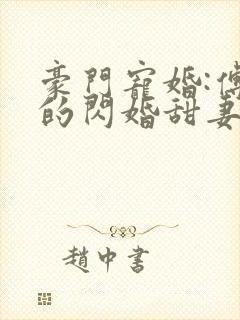 豪門寵婚:傅
的閃婚甜妻
趙中書